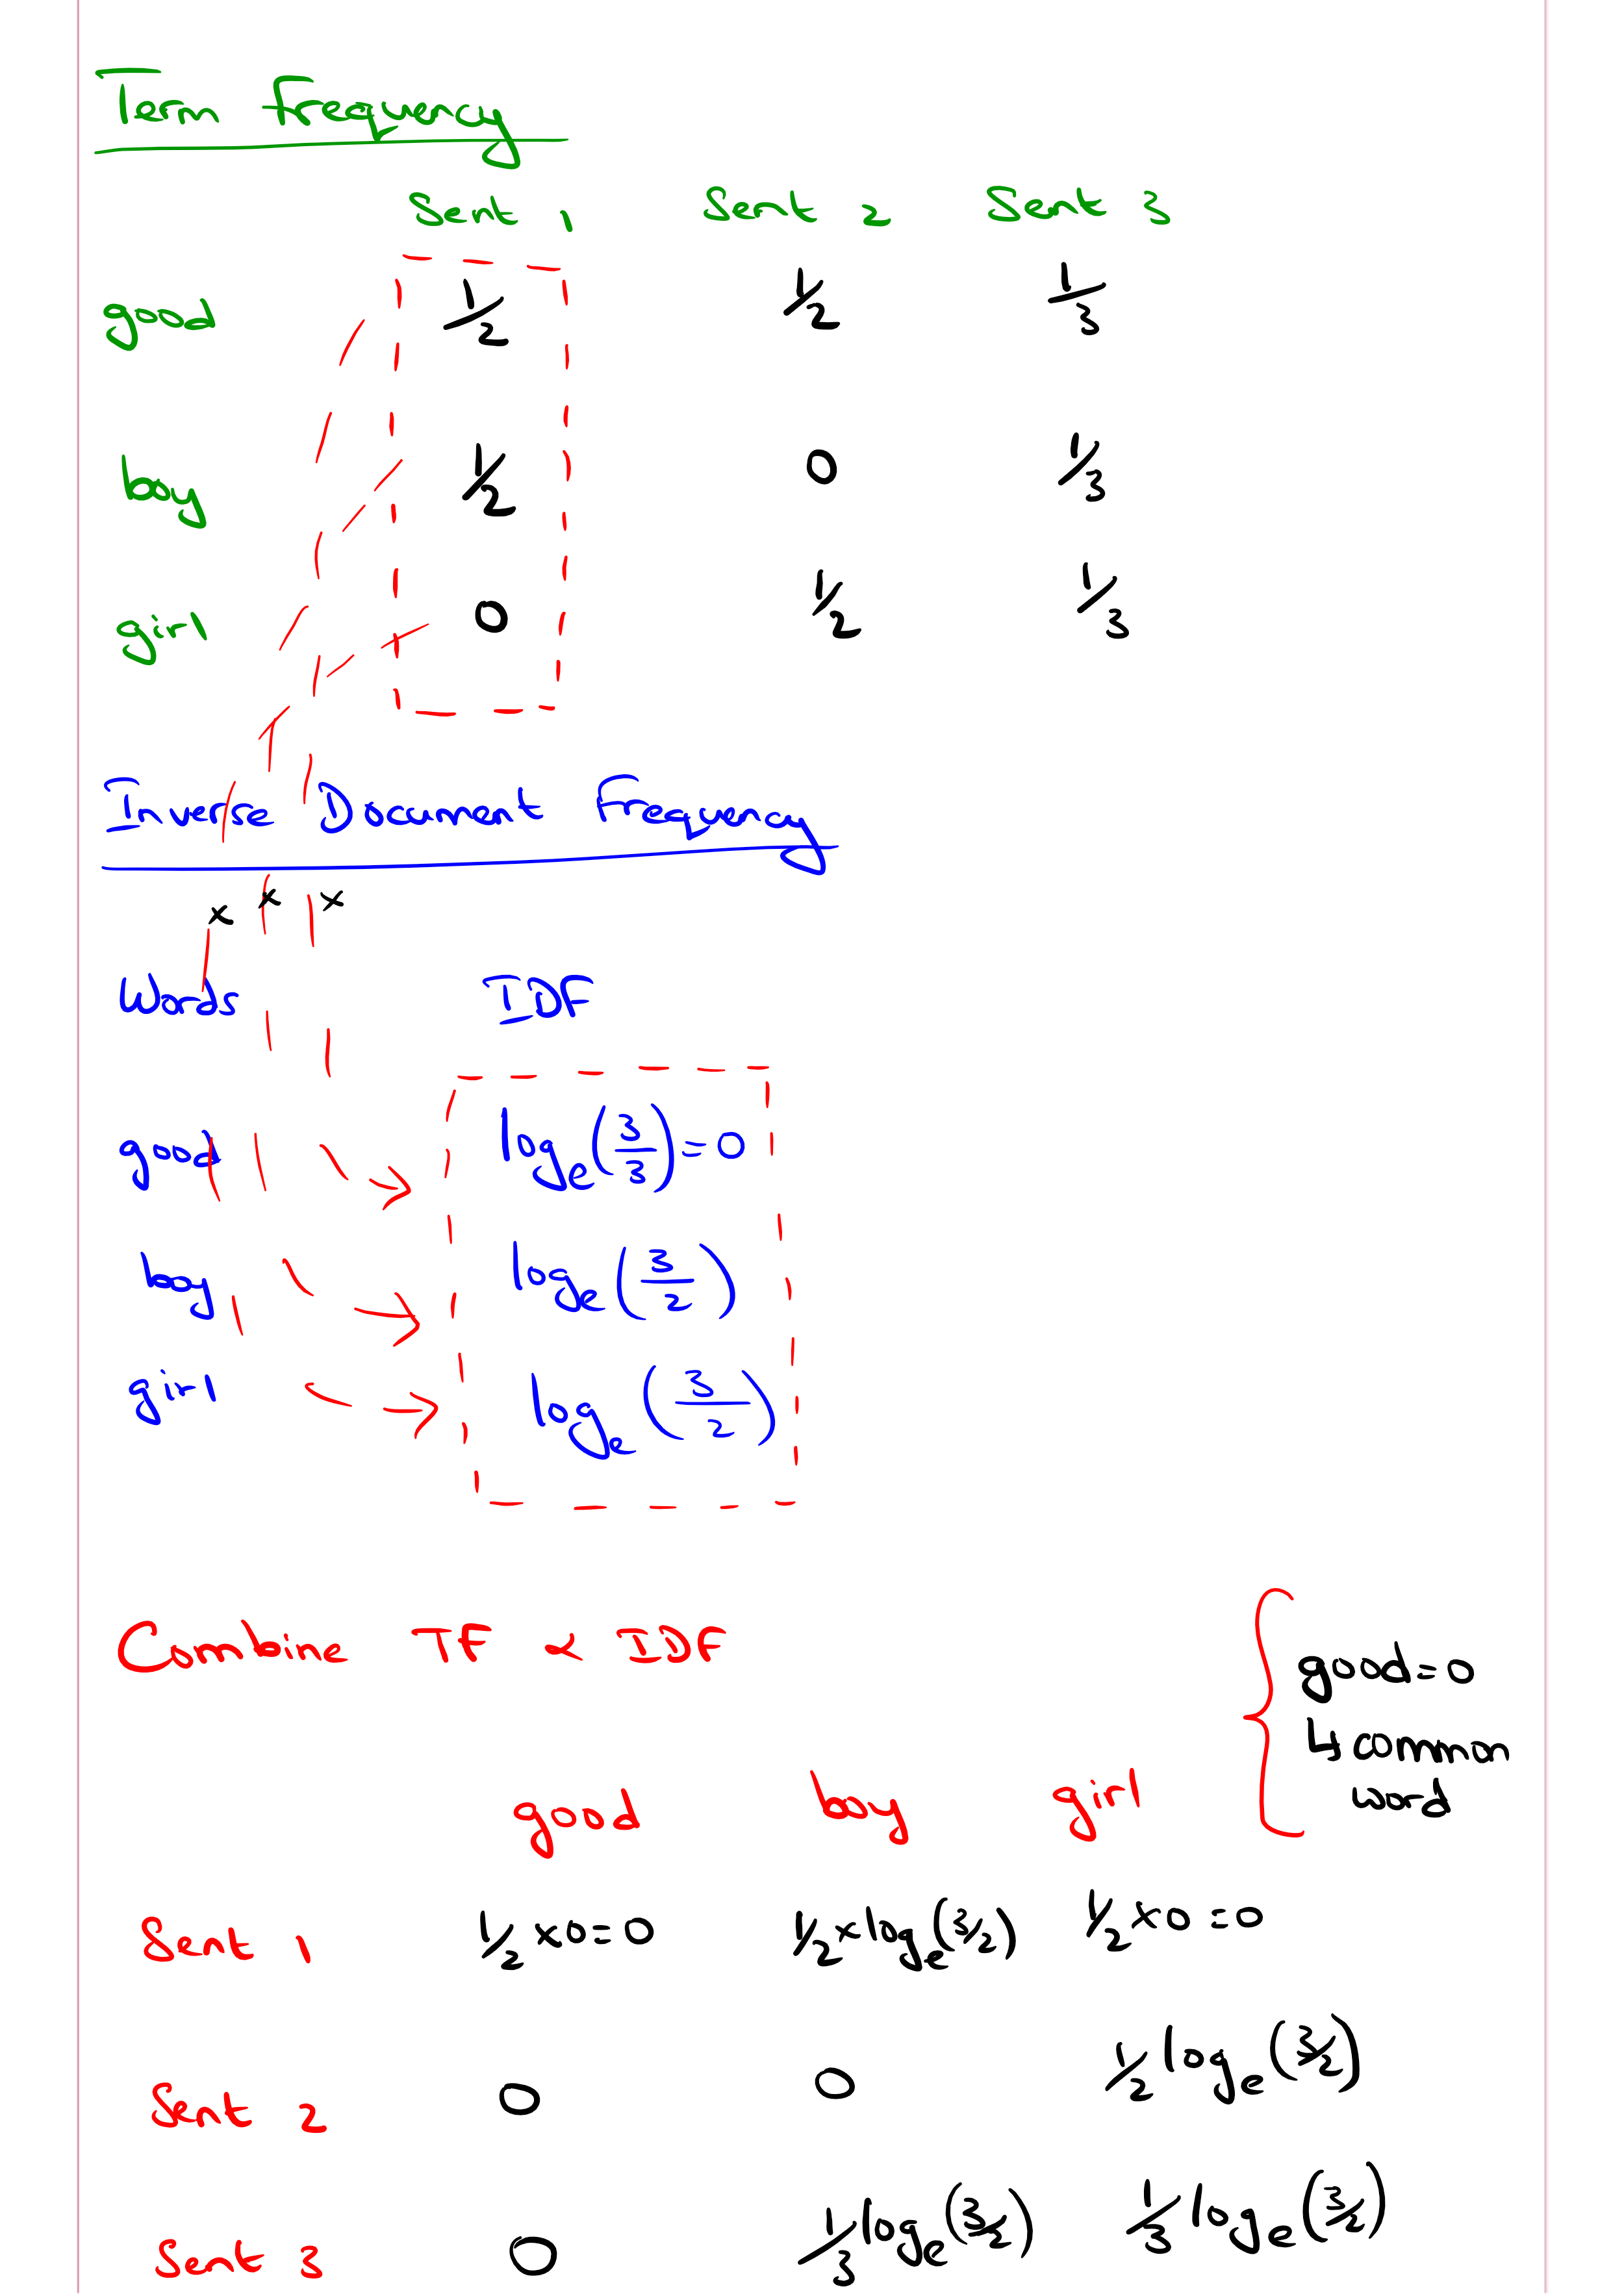 Term Frequency
Sent 1 Sent 2 Sent 3
good 1/2 1/2 1/3
boy 1/2 0 1/3
girl 0 1/2 1/3
Inverse Document Frequency
x x x
Words IDF
good log_e(3/3)=0
boy log_e(3/2)
girl log_e(3/2)
Combine TF & IDF
good=0
↳ common
word
good boy girl
Sent 1 1/2 x0=0 1/2 x log_e(3/2) 1/2 x0=0
Sent 2 0 0 1/2 log_e(3/2)
Sent 3 0 1/3 log_e(3/2) 1/3 log_e(3/2)